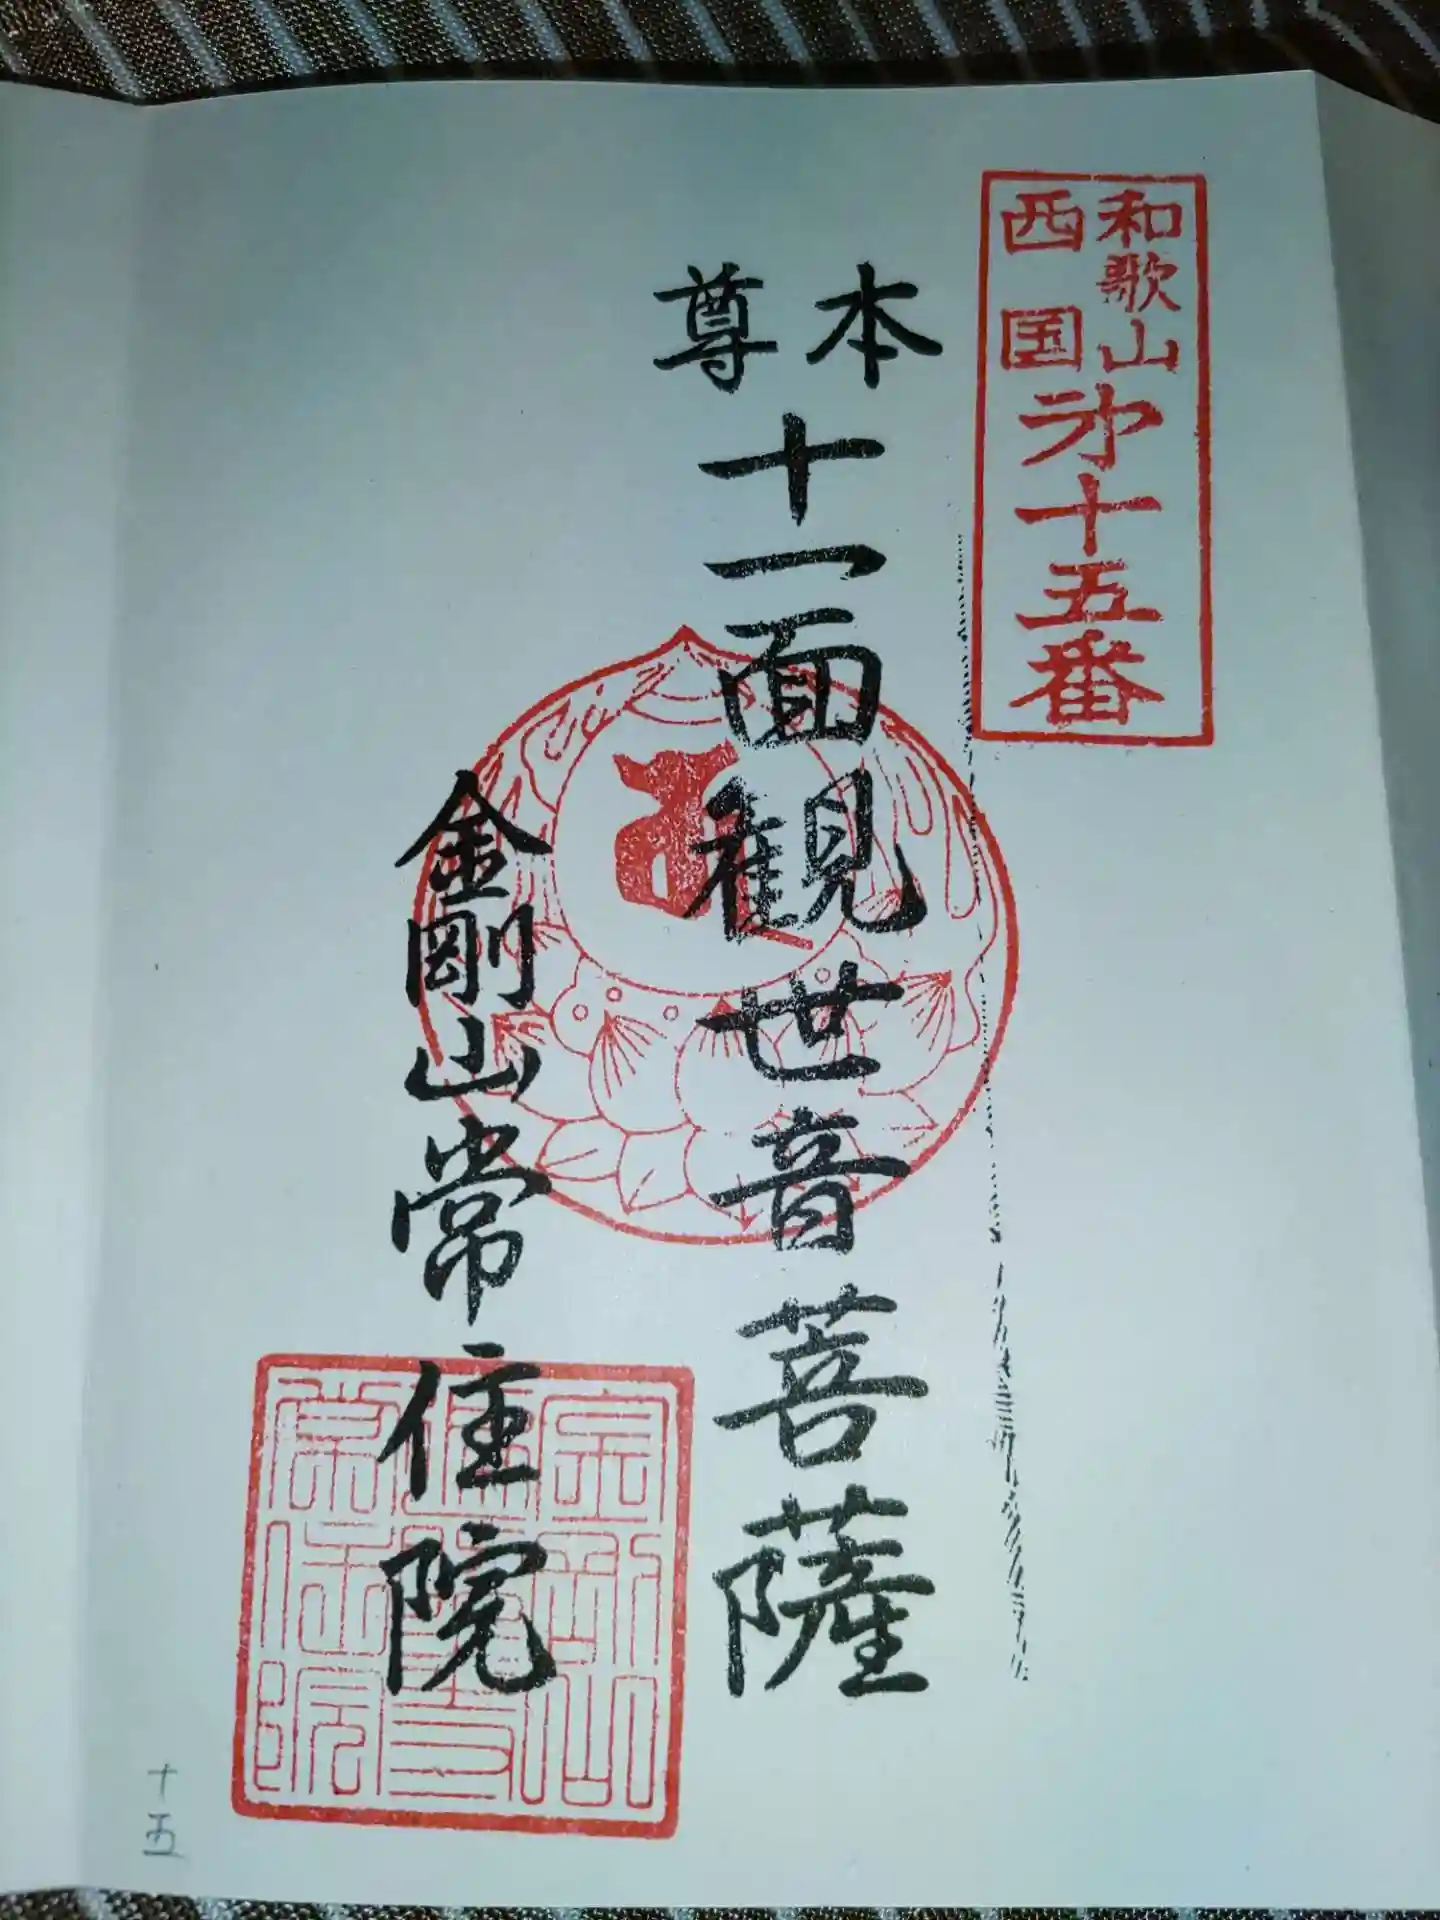 和歌山
西国
第十五番
本尊
十一面観世音菩薩
金剛山常住院
十五